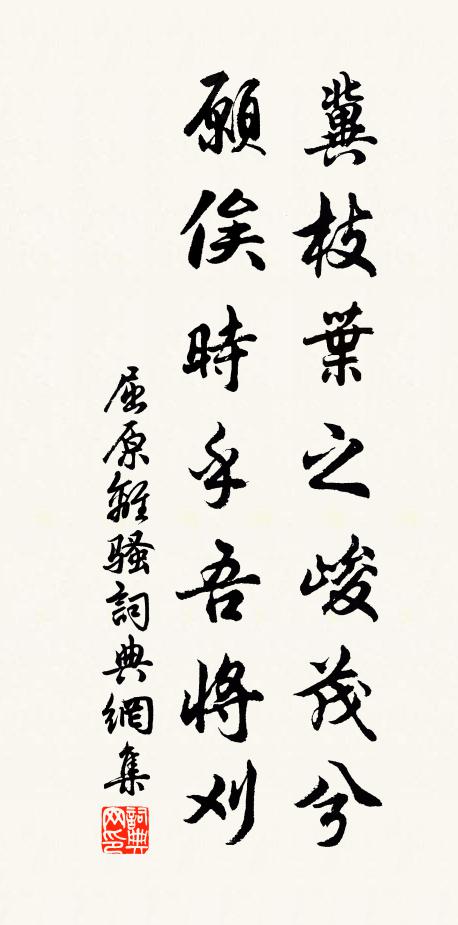 冀枝葉之峻茂兮
願俟時乎吾將刈
屈原離騷詞典網集
詞典网印